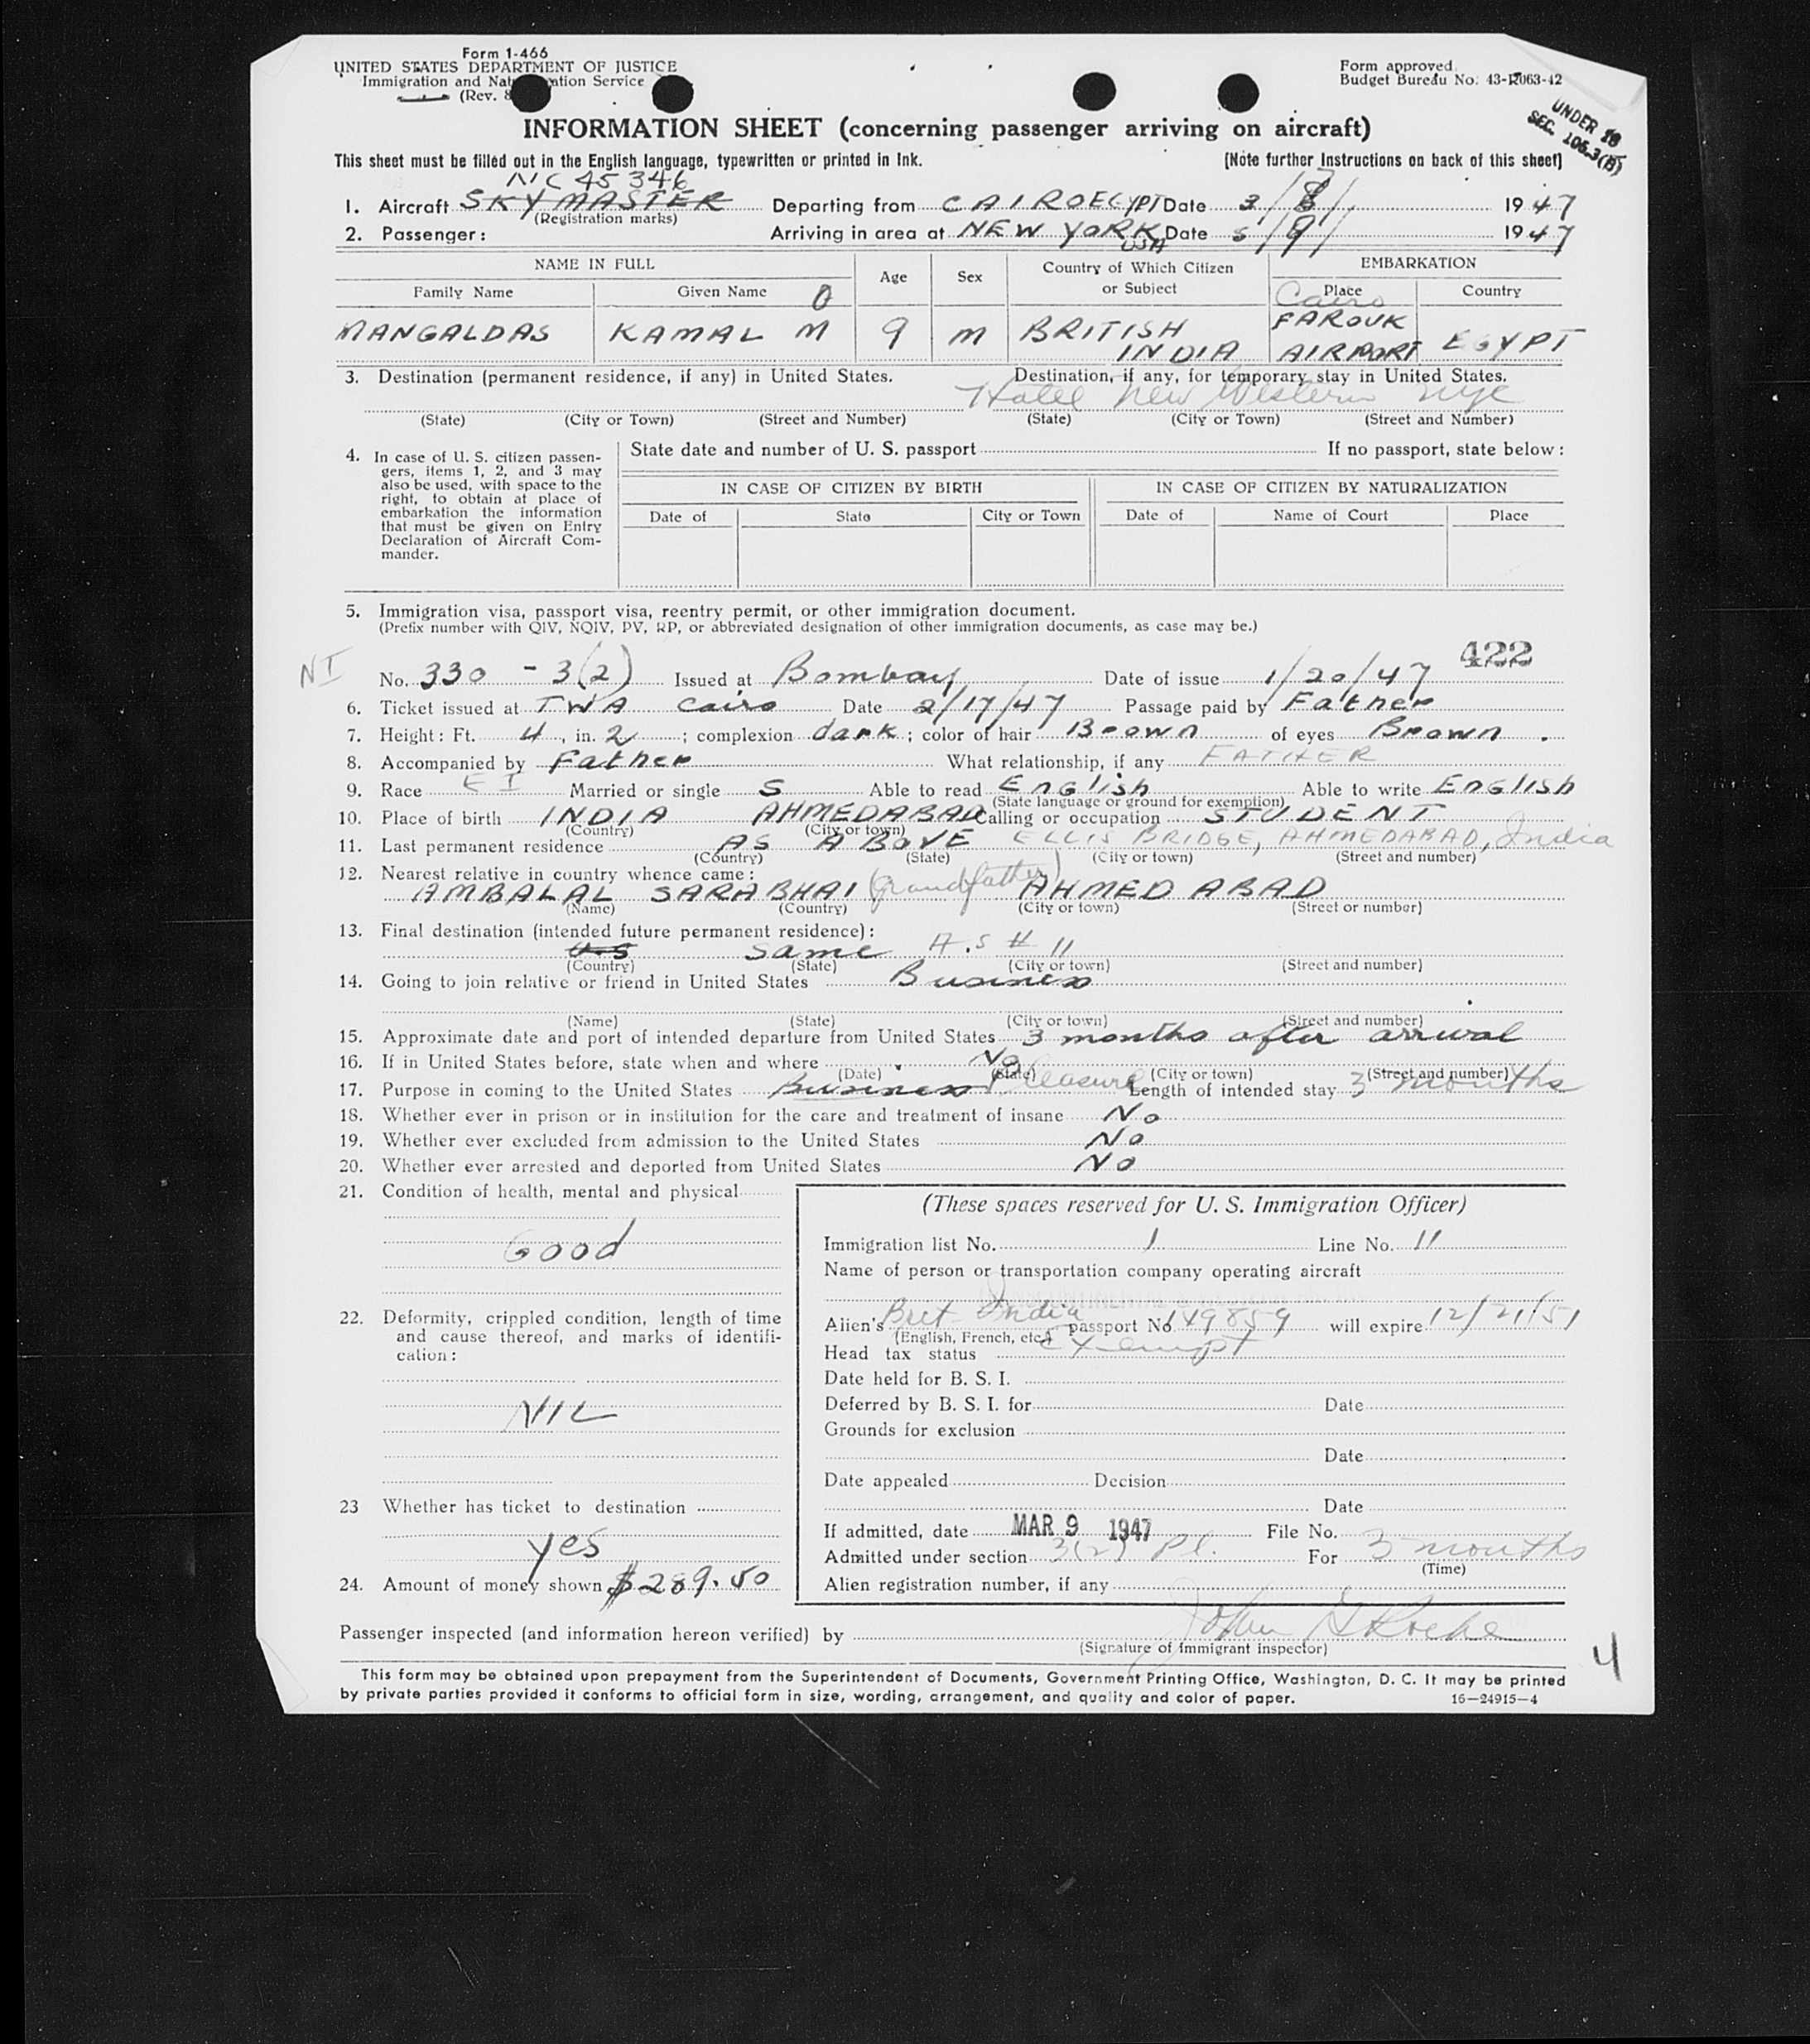 Form 1-466
UNITED STATES DEPARTMENT OF JUSTICE
Immigration and Naturalization Service
(Rev. 8
Form approved.
Budget Bureau No. 43-R063-42
UNDER 16
SEC. 105.3(B)
INFORMATION SHEET (concerning passenger arriving on aircraft)
This sheet must be filled out in the English language, typewritten or printed in Ink. [Note further Instructions on back of this sheet]
NC 45346
1. Aircraft SKYMASTER Departing from CAIRO EGYPT Date 3/8/ 1947
(Registration marks)
2. Passenger: Arriving in area at NEW YORK USA Date 9/ 1947
NAME IN FULL Age Sex Country of Which Citizen or Subject EMBARKATION
Family Name Given Name Place Country
Cairo
MANGALDAS KAMAL M 9 M BRITISH INDIA FAROUK AIRPORT EGYPT
3. Destination (permanent residence, if any) in United States. Destination, if any, for temporary stay in United States.
Hotel New Western NYC
(State) (City or Town) (Street and Number) (State) (City or Town) (Street and Number)
4. In case of U. S. citizen passen-
gers, items 1, 2, and 3 may
also be used, with space to the
right, to obtain at place of
embarkation the information
that must be given on Entry
Declaration of Aircraft Com-
mander.
State date and number of U. S. passport If no passport, state below:
IN CASE OF CITIZEN BY BIRTH IN CASE OF CITIZEN BY NATURALIZATION
Date of State City or Town Date of Name of Court Place
5. Immigration visa, passport visa, reentry permit, or other immigration document.
(Prefix number with QIV, NQIV, PV, RP, or abbreviated designation of other immigration documents, as case may be.)
422
NI
No. 330 - 3(2) Issued at Bombay Date of issue 1/20/47
6. Ticket issued at TWA Cairo Date 2/17/47 Passage paid by Father
7. Height: Ft. 4, in. 2; complexion dark; color of hair Brown of eyes Brown.
8. Accompanied by Father What relationship, if any FATHER
9. Race E I Married or single S Able to read English Able to write English
(State language or ground for exemption)
10. Place of birth INDIA AHMEDABAD Calling or occupation STUDENT
(Country) (City or town)
11. Last permanent residence AS ABOVE ELLIS BRIDGE, AHMEDABAD, India
(Country) (State) (City or town) (Street and number)
12. Nearest relative in country whence came:
AMBALAL SARABHAI (Grandfather) AHMEDABAD
(Name) (Country) (City or town) (Street or number)
13. Final destination (intended future permanent residence):
U.S same A.S # 11
(Country) (State) (City or town) (Street and number)
14. Going to join relative or friend in United States Business
(Name) (State) (City or town) (Street and number)
15. Approximate date and port of intended departure from United States 3 months after arrival
16. If in United States before, state when and where No
(Date) (State) (City or town) (Street and number)
17. Purpose in coming to the United States Business Pleasure Length of intended stay 3 months
18. Whether ever in prison or in institution for the care and treatment of insane No
19. Whether ever excluded from admission to the United States No
20. Whether ever arrested and deported from United States No
21. Condition of health, mental and physical
Good
22. Deformity, crippled condition, length of time
and cause thereof, and marks of identifi-
cation:
NIL
23 Whether has ticket to destination
yes
24. Amount of money shown $289.50
(These spaces reserved for U. S. Immigration Officer)
Immigration list No. 1 Line No. 11
Name of person or transportation company operating aircraft
Alien's Brit India passport No. 149859 will expire 12/21/51
(English, French, etc.)
Head tax status Exempt
Date held for B. S. I.
Deferred by B. S. I. for Date
Grounds for exclusion
Date
Date appealed Decision
Date
If admitted, date MAR 9 1947 File No.
Admitted under section 3(2) Pl. For 3 months
(Time)
Alien registration number, if any
Passenger inspected (and information hereon verified) by John
(Signature of immigrant inspector)
4
This form may be obtained upon prepayment from the Superintendent of Documents, Government Printing Office, Washington, D. C. It may be printed
by private parties provided it conforms to official form in size, wording, arrangement, and quality and color of paper. 16—24915-4